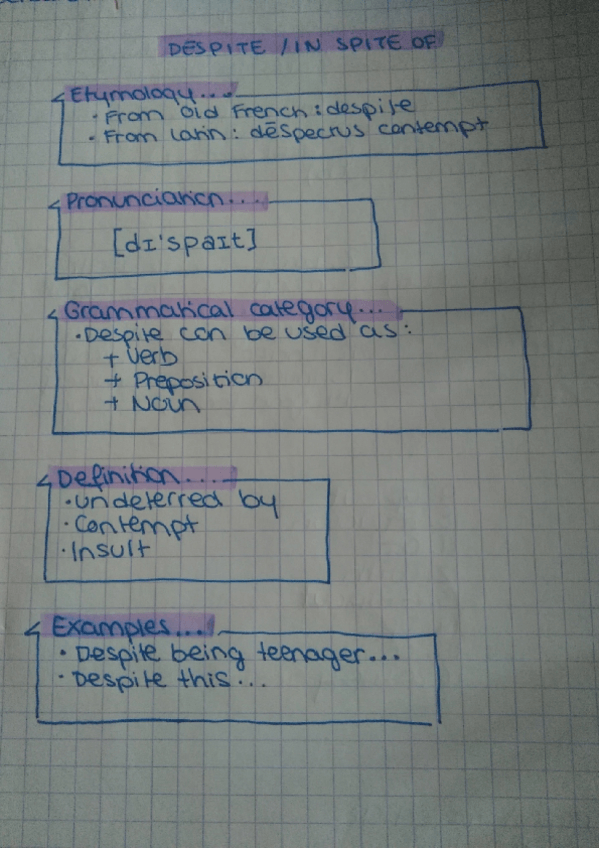 DESPITE / IN SPITE OF
Etymology...
· From Old French: despite
· From Latin: dēspectus contempt
Pronunciation...
[dɪ'spaɪt]
Grammatical category...
· Despite can be used as:
+ Verb
+ Preposition
+ Noun
Definition...
· undeterred by
· Contempt
· Insult
Examples...
· Despite being teenager...
· Despite this...